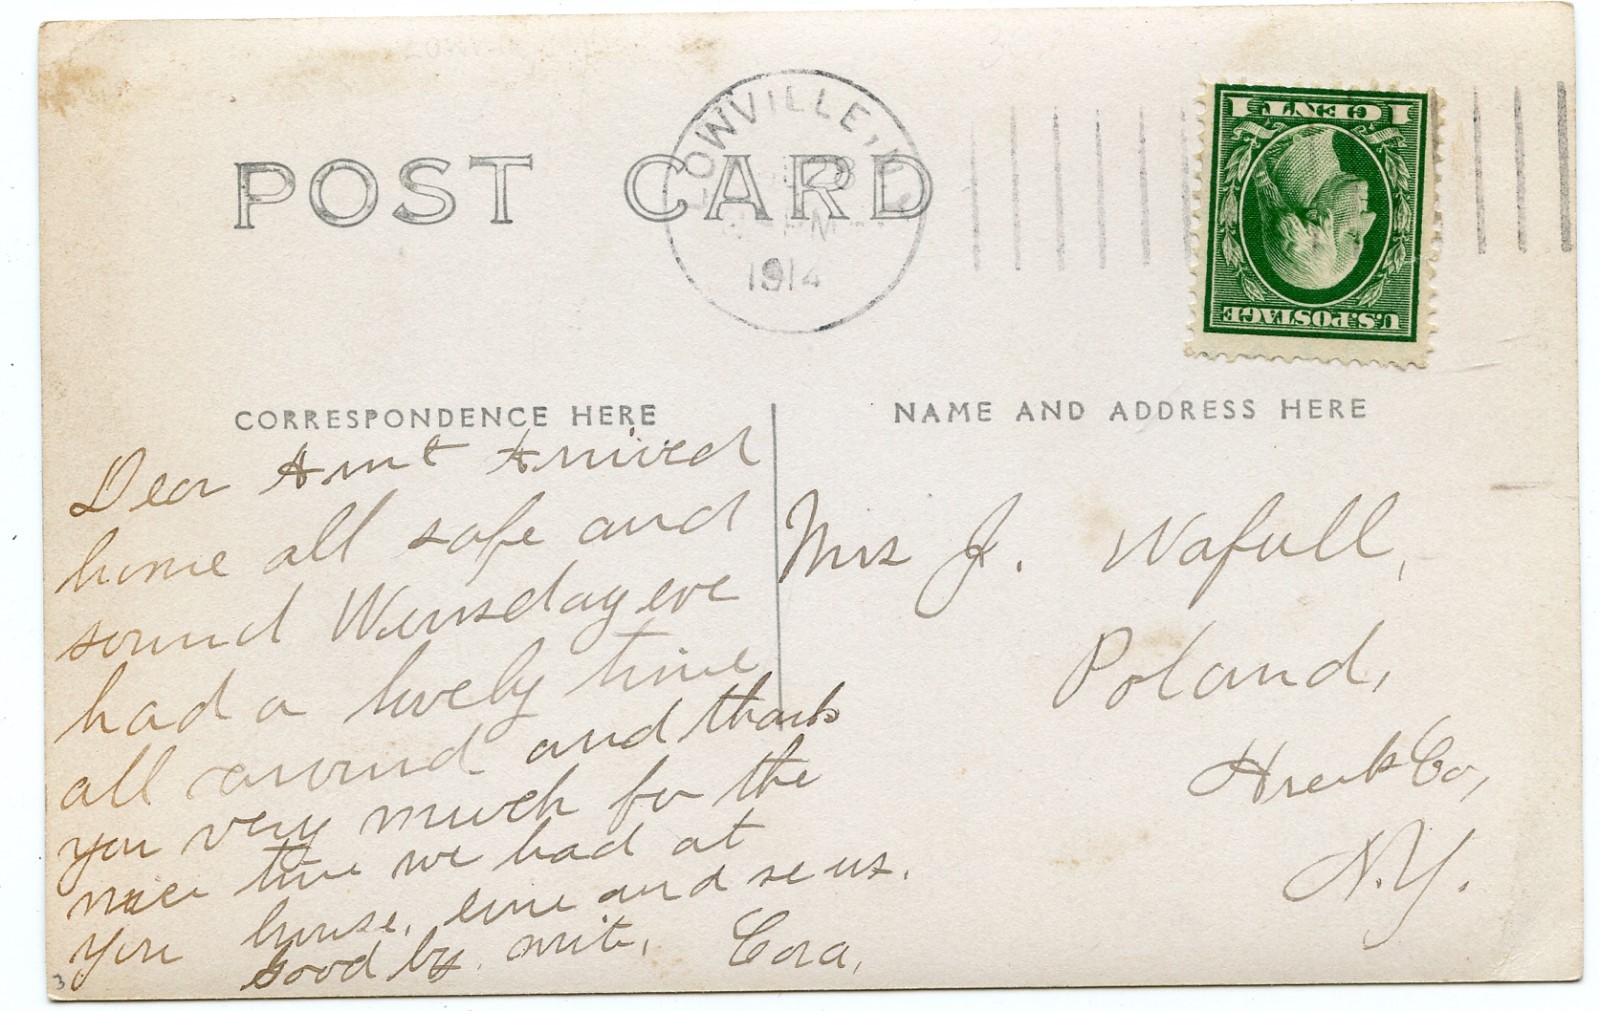 POST CARD
LOWVILLE, N.Y.
PM
1914
1 CENT 1
U.S. POSTAGE
CORRESPONDENCE HERE
NAME AND ADDRESS HERE
Dear Aunt Arrived
home all safe and
sound Wensday eve
had a lovely time
all around and thank
you very much for the
nice time we had at
you house, come and se us.
Good by. write, Cora,
Mrs J. Wafull,
Poland,
Herk Co,
N.Y.
3